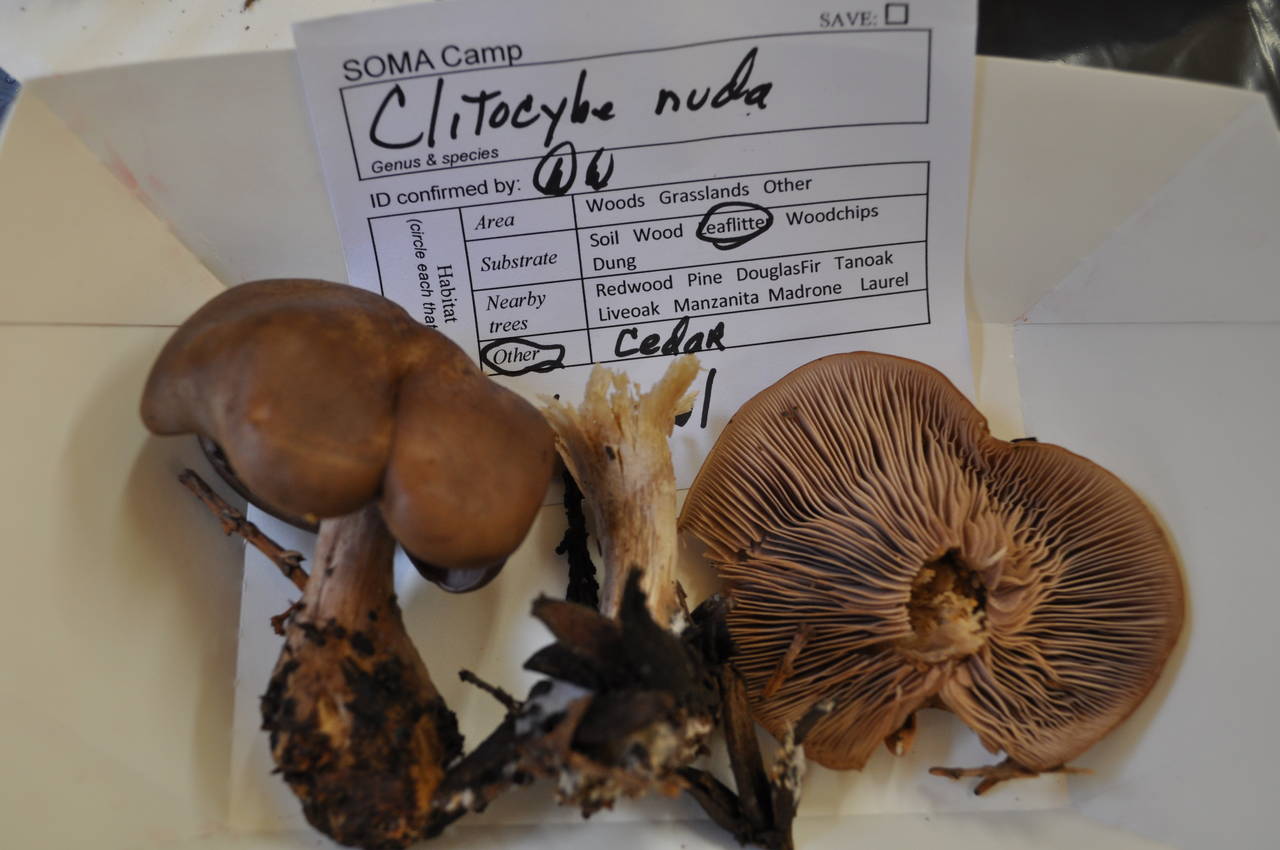 SAVE:
SOMA Camp
Clitocybe nuda
Genus & species
ID confirmed by:
Habitat
(circle each that
Area
Woods Grasslands Other
Substrate
Soil Wood Leaflitter Woodchips
Dung
Nearby
trees
Redwood Pine DouglasFir Tanoak
Liveoak Manzanita Madrone Laurel
Other
Cedar